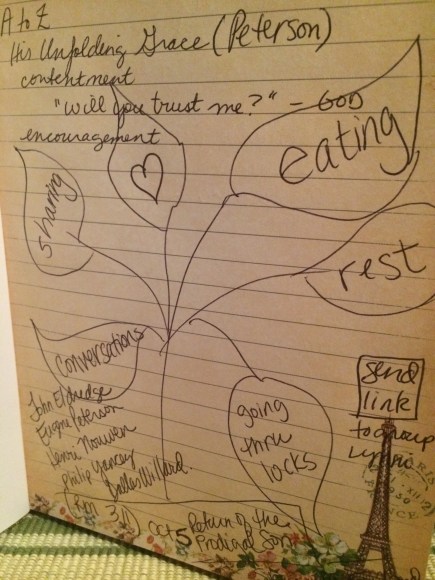 A to Z
His Unfolding Grace (Peterson)
contentment
"will you trust me?" – GOD
encouragement
eating
sharing
rest
conversations
John Eldredge
Eugene Peterson
Henri Nouwen
Philip Yancey
Dallas Willard
going
thru
locks
send
link
to group
Return of the
Prodigal Son